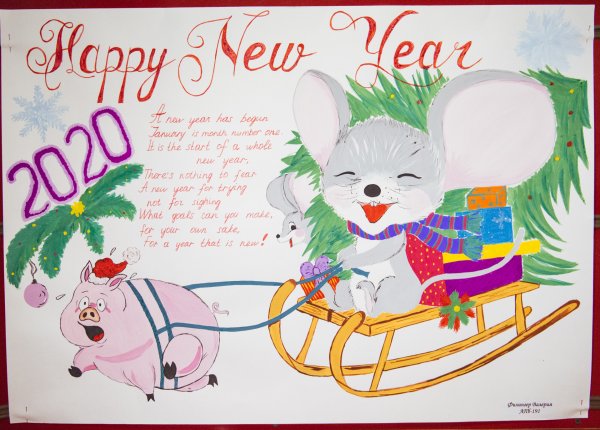 Happy New Year
2020
A new year has begun
January is month number one.
It is the start of a whole
new year,
There's nothing to fear
A new year for trying
not for sighing
What goals can you make,
for your own sake,
for a year that is new!
АПБ-191